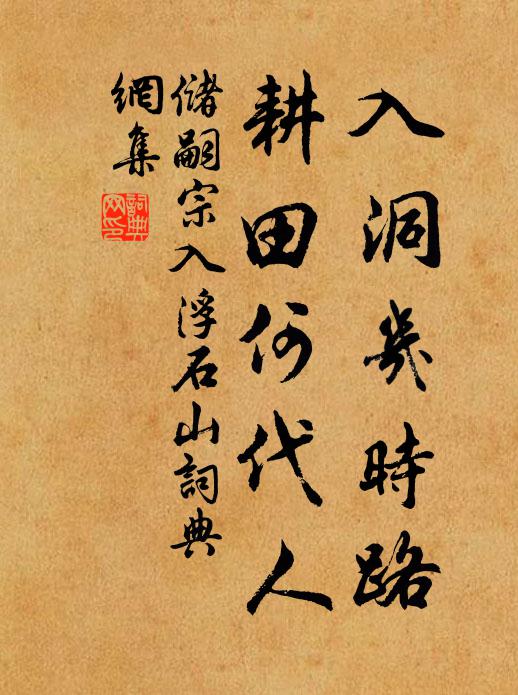 入洞幾時路
耕田何代人
儲嗣宗入浮石山詞典
網集
詞典
网印